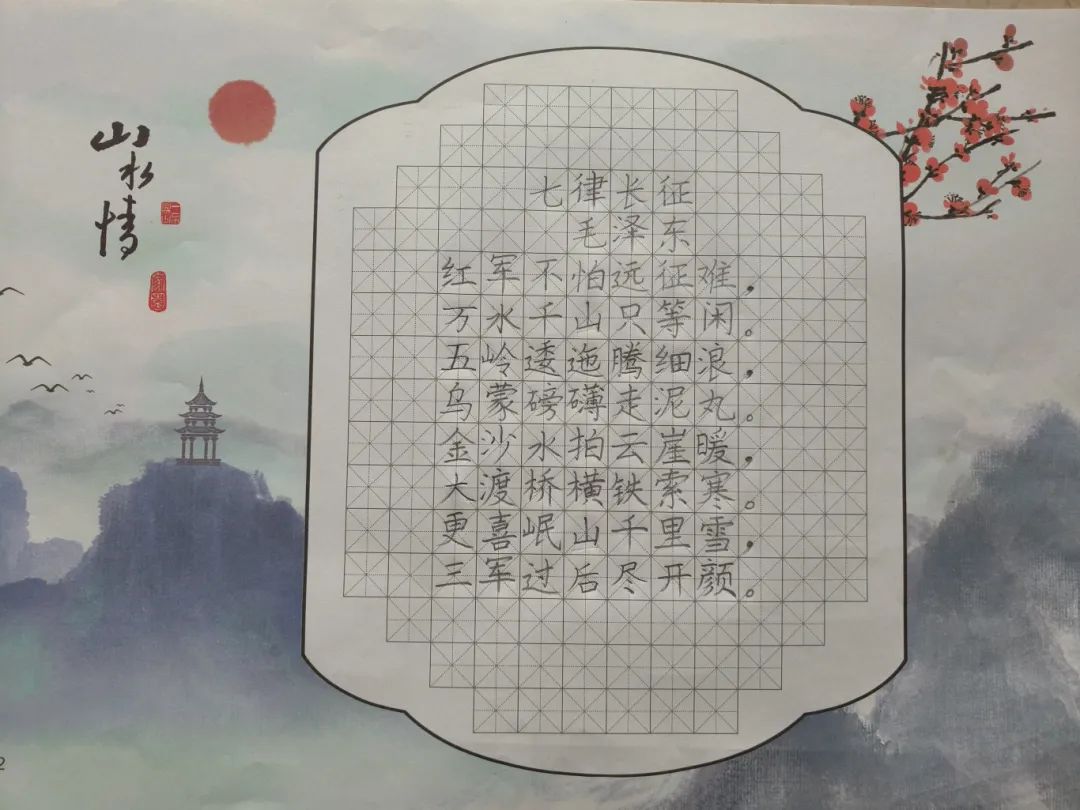 山水情
七律长征
毛泽东
红军不怕远征难，
万水千山只等闲。
五岭逶迤腾细浪，
乌蒙磅礴走泥丸。
金沙水拍云崖暖，
大渡桥横铁索寒。
更喜岷山千里雪，
三军过后尽开颜。
2